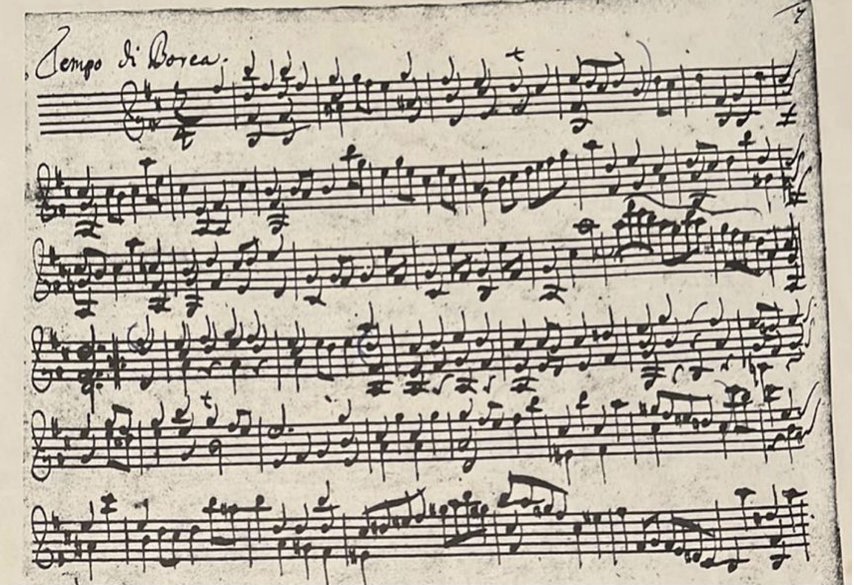 Tempo di Borea.
7